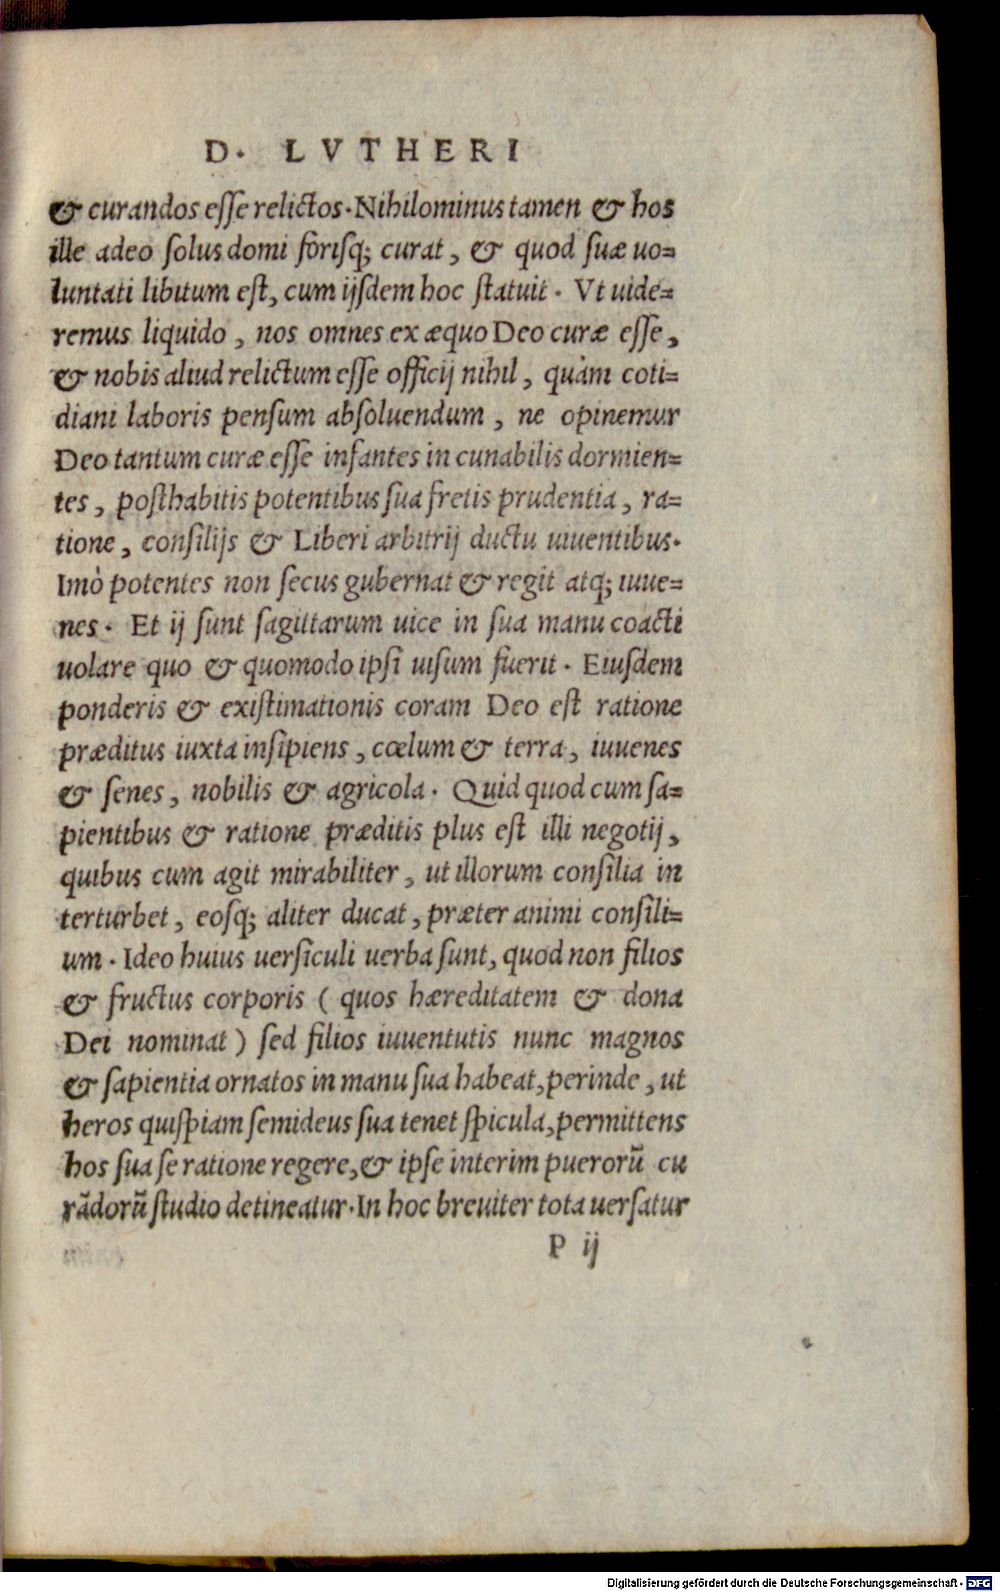 D. LVTHERI
& curandos eſſe relictos. Nihilominus tamen & hos
ille adeo ſolus domi foriſq; curat, & quod ſuæ uo=
luntati libitum eſt, cum ijſdem hoc ſtatuit. Vt uide=
remus liquido, nos omnes ex æquo Deo curæ eſſe,
& nobis aliud relictum eſſe officij nihil, quàm coti=
diani laboris penſum abſoluendum, ne opinemur
Deo tantum curæ eſſe infantes in cunabilis dormien=
tes, poſthabitis potentibus ſua fretis prudentia, ra=
tione, conſilijs & Liberi arbitrij ductu uiuentibus.
Imò potentes non ſecus gubernat & regit atq; iuue=
nes. Et ij ſunt ſagittarum uice in ſua manu coacti
uolare quo & quomodo ipſi uiſum fuerit. Eiuſdem
ponderis & exiſtimationis coram Deo eſt ratione
præditus iuxta inſipiens, cœlum & terra, iuuenes
& ſenes, nobilis & agricola. Quid quod cum ſa=
pientibus & ratione præditis plus eſt illi negotij,
quibus cum agit mirabiliter, ut illorum conſilia in
terturbet, eoſq; aliter ducat, præter animi conſili=
um. Ideo huius uerſiculi uerba ſunt, quod non filios
& fructus corporis ( quos hæreditatem & dona
Dei nominat ) ſed filios iuuentutis nunc magnos
& ſapientia ornatos in manu ſua habeat, perinde, ut
heros quiſpiam ſemideus ſua tenet ſpicula, permittens
hos ſua ſe ratione regere, & ipſe interim puerorũ cu
rãdorũ ſtudio detineatur. In hoc breuiter tota uerſatur
P ij
Digitalisierung gefördert durch die Deutsche Forschungsgemeinschaft - DFG